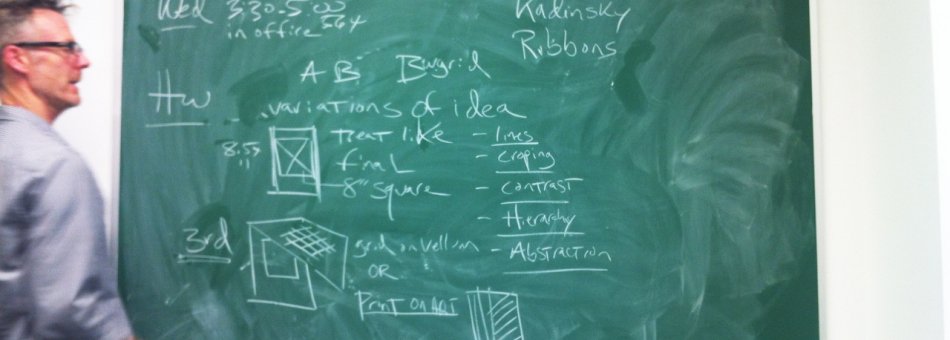 Wed 3:30-5:00
in office 564
Kadinsky
Ribbons
A B
HW
variations of idea
treat like
final
8" square
- lines
- croping
- contrast
- Hierarchy
- Abstraction
3rd
grid on vellum
OR
Print on